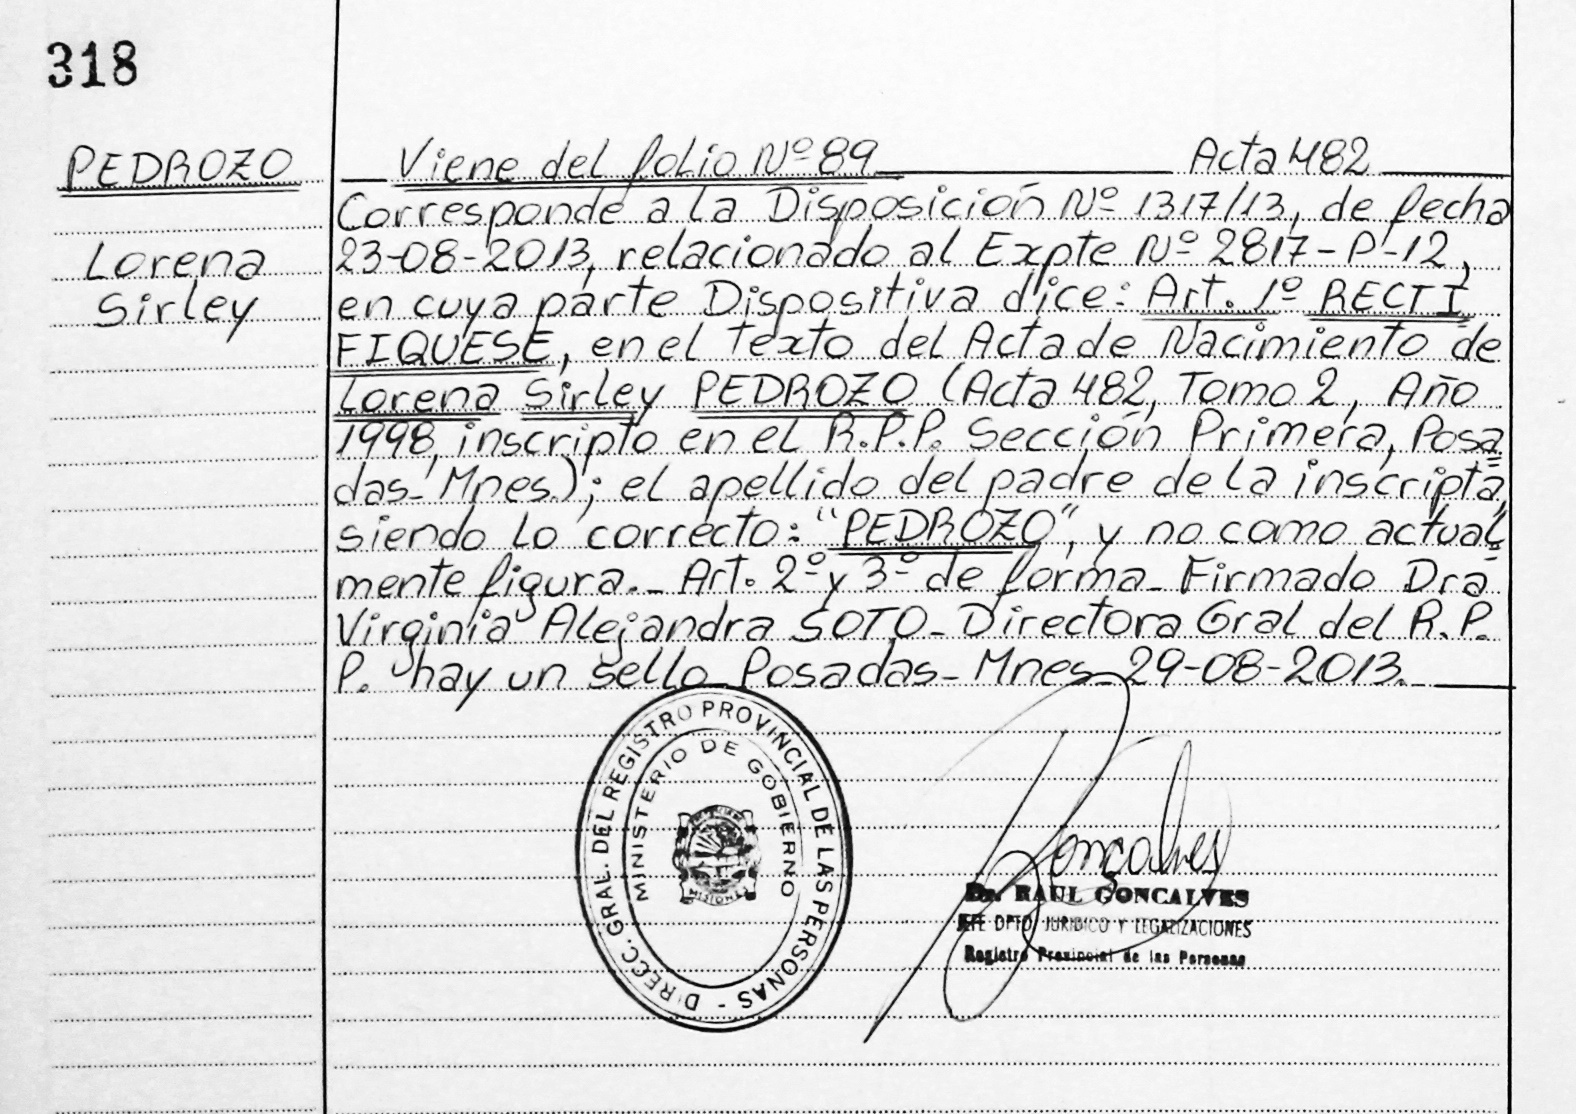 318
PEDROZO
Lorena
Sirley
Viene del folio Nº 89 Acta 482
Corresponde a la Disposición Nº 1317/13, de fecha
23-08-2013, relacionado al Expte Nº 2817-P-12,
en cuya parte Dispositiva dice: Art. 1º RECTI
FIQUESE, en el Texto del Acta de Nacimiento de
Lorena Sirley PEDROZO (Acta 482, Tomo 2, Año
1998, inscripto en el R.P.P. Sección Primera, Posa
das-Mnes.); el apellido del padre de la inscripta,
siendo lo correcto: "PEDROZO", y no como actual
mente figura.- Art. 2º y 3º de forma- Firmado Dra
Virginia Alejandra SOTO- Directora Gral del R.P.
P. hay un sello Posadas- Mnes- 29-08-2013.
DIRECC. GRAL. DEL REGISTRO PROVINCIAL DE LAS PERSONAS -
MINISTERIO DE GOBIERNO
MISIONES
Gonçalves
Dr. RAUL GONCALVES
JEFE DPTO JURIDICO Y LEGALIZACIONES
Registro Provincial de las Personas